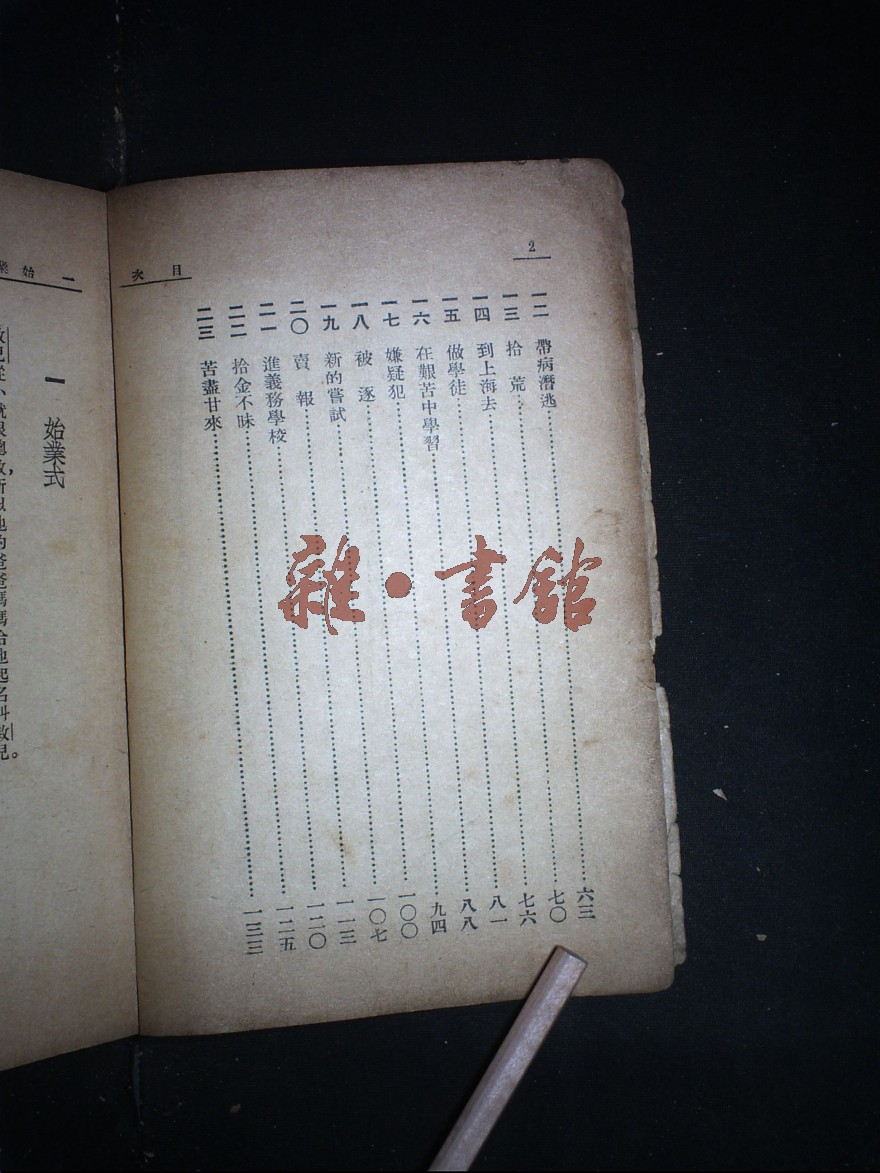 2
目次
一二　帶病潛逃……六三
一三　拾荒……七〇
一四　到上海去……七六
一五　做學徒……八一
一六　在艱苦中學習……八八
一七　嫌疑犯……九四
一八　被逐……一〇〇
一九　新的嘗試……一〇七
二〇　賣報……一一三
二一　進義務學校……一二〇
二二　拾金不昧……一二五
二三　苦盡甘來……一三三
雜•書館
一　始業
一　始業式
敏兒從小就很聰敏，所以他的爸爸媽媽給他起名叫敏兒。